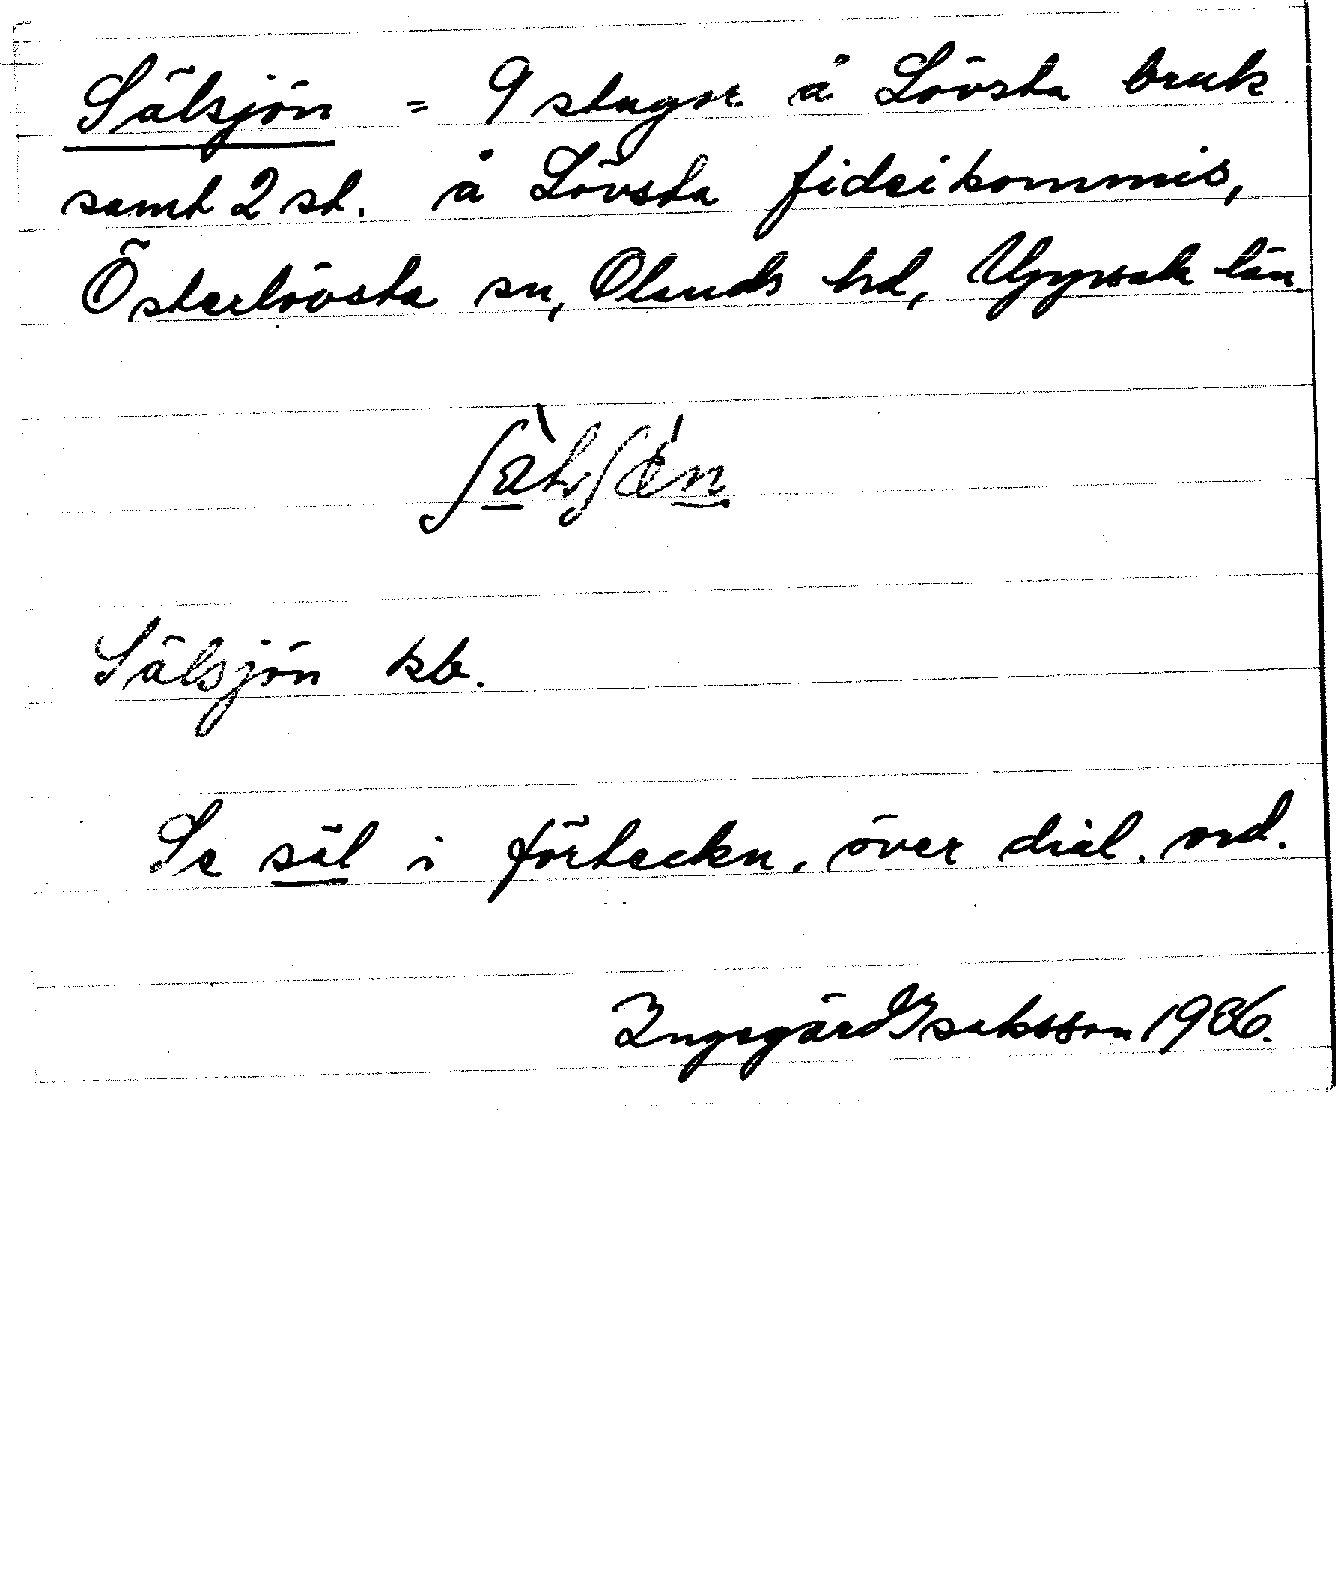 Sälsjön = 9 stugor å Lövsta bruk
samt 2 st. å Lövsta fideikommis,
Österlövsta sn, Olands hd, Uppsala län
Sälsjön kb.
Se säl i förteckn. över dial. ord.
Ingegärd Isaksson 1986.